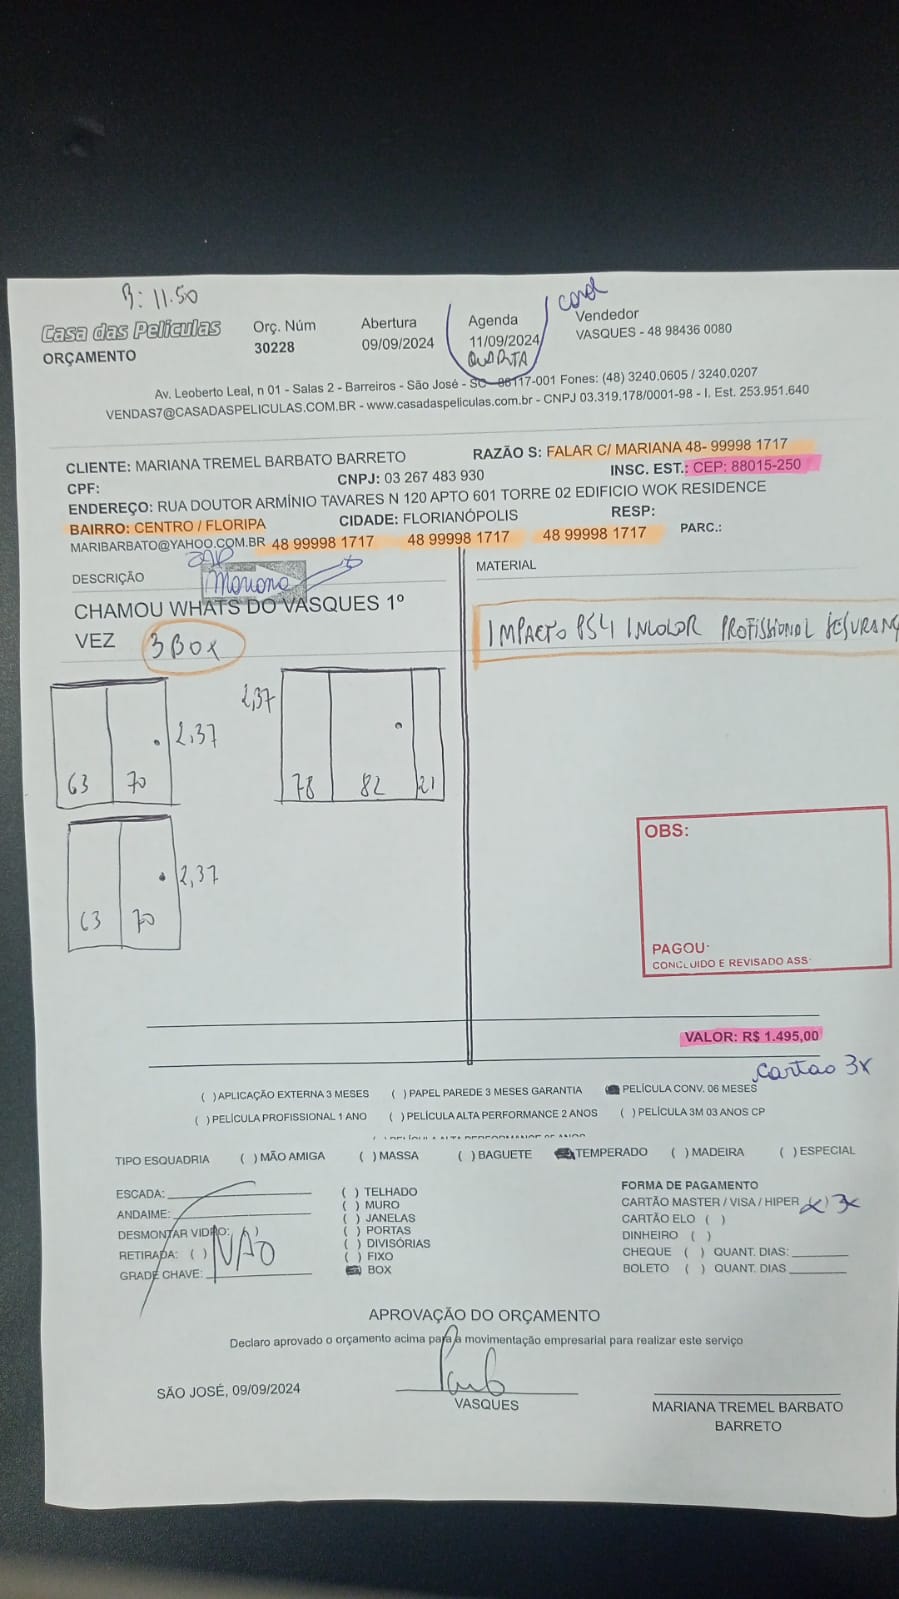 B: 11.50
Casa das Películas
ORÇAMENTO
Orç. Núm
30228
Abertura
09/09/2024
Agenda
11/09/2024
QUARTA
Vendedor
VASQUES - 48 98436 0080
Av. Leoberto Leal, n 01 - Salas 2 - Barreiros - São José - SC - 88117-001 Fones: (48) 3240.0605 / 3240.0207
VENDAS7@CASADASPELICULAS.COM.BR - www.casadaspeliculas.com.br - CNPJ 03.319.178/0001-98 - I. Est. 253.951.640
CLIENTE: MARIANA TREMEL BARBATO BARRETO
RAZÃO S: FALAR C/ MARIANA 48- 99998 1717
CPF:
CNPJ: 03 267 483 930
INSC. EST.: CEP: 88015-250
ENDEREÇO: RUA DOUTOR ARMÍNIO TAVARES N 120 APTO 601 TORRE 02 EDIFICIO WOK RESIDENCE
BAIRRO: CENTRO / FLORIPA
CIDADE: FLORIANÓPOLIS
RESP:
MARIBARBATO@YAHOO.COM.BR 48 99998 1717 48 99998 1717 48 99998 1717
PARC.:
DESCRIÇÃO
Mariana
MATERIAL
CHAMOU WHATS DO VASQUES 1º
VEZ 3 BOX
IMPACTO PS4 INCOLOR PROFISSIONAL SEGURANÇ
63 70 2,37
2,37 78 82 21
63 70 2,37
OBS:
PAGOU:
CONCLUIDO E REVISADO ASS:
VALOR: R$ 1.495,00
Cartao 3x
( ) APLICAÇÃO EXTERNA 3 MESES ( ) PAPEL PAREDE 3 MESES GARANTIA PELÍCULA CONV. 06 MESES
( ) PELÍCULA PROFISSIONAL 1 ANO ( ) PELÍCULA ALTA PERFORMANCE 2 ANOS ( ) PELÍCULA 3M 03 ANOS CP
TIPO ESQUADRIA ( ) MÃO AMIGA ( ) MASSA ( ) BAGUETE TEMPERADO ( ) MADEIRA ( ) ESPECIAL
ESCADA:
ANDAIME:
DESMONTAR VIDRO: ( )
RETIRADA: ( )
GRADE CHAVE:
NÃO
( ) TELHADO
( ) MURO
( ) JANELAS
( ) PORTAS
( ) DIVISÓRIAS
( ) FIXO
BOX
FORMA DE PAGAMENTO
CARTÃO MASTER / VISA / HIPER (x) 3x
CARTÃO ELO ( )
DINHEIRO ( )
CHEQUE ( ) QUANT. DIAS:
BOLETO ( ) QUANT. DIAS
APROVAÇÃO DO ORÇAMENTO
Declaro aprovado o orçamento acima para a movimentação empresarial para realizar este serviço
SÃO JOSÉ, 09/09/2024
VASQUES
MARIANA TREMEL BARBATO
BARRETO